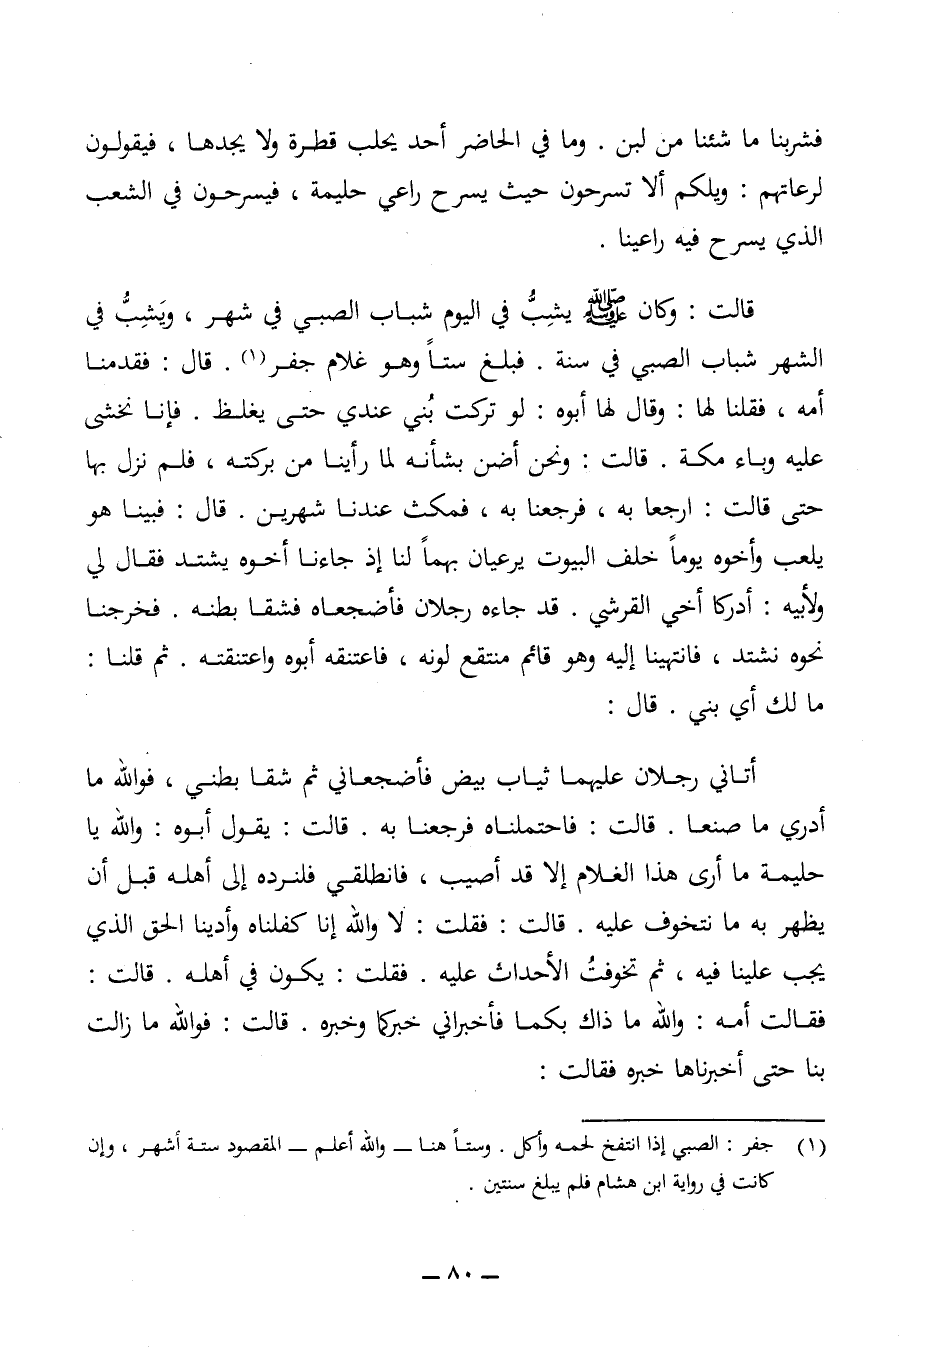 فشربنا ما شئنا من لبن . وما في الحاضر أحد يحلب قطرة ولا يجدها ، فيقولون
لرعاتهم : ويلكم ألا تسرحون حيث يسرح راعي حليمة ، فيسرحون في الشعب
الذي يسرح فيه راعينا .
قالت : وكان ﷺ يشِبُّ في اليوم شباب الصبي في شهر ، ويَشِبُّ في
الشهر شباب الصبي في سنة . فبلغ ستاً وهو غلام جفر (١) . قال : فقدمنا
أمه ، فقلنا لها : وقال لها أبوه : لو تركت بُني عندي حتى يغلظ . فإنا نخشى
عليه وباء مكة . قالت : ونحن أضن بشأنه لما رأينا من بركته ، فلم نزل بها
حتى قالت : ارجعا به ، فرجعنا به ، فمكث عندنا شهرين . قال : فبينا هو
يلعب وأخوه يوماً خلف البيوت يرعيان بهماً لنا إذ جاءنا أخوه يشتد فقال لي
ولأبيه : أدركا أخي القرشي . قد جاءه رجلان فأضجعاه فشقا بطنه . فخرجنا
نحوه نشتد ، فانتهينا إليه وهو قائم منتقع لونه ، فاعتنقه أبوه واعتنقته . ثم قلنا :
ما لك أي بني . قال :
أتاني رجلان عليهما ثياب بيض فأضجعاني ثم شقا بطني ، فوالله ما
أدري ما صنعا . قالت : فاحتملناه فرجعنا به . قالت : يقول أبوه : والله يا
حليمة ما أرى هذا الغلام إلا قد أصيب ، فانطلقي فلنرده إلى أهله قبل أن
يظهر به ما نتخوف عليه . قالت : فقلت : لا والله إنا كفلناه وأدينا الحق الذي
يجب علينا فيه ، ثم تخوفتُ الأحداث عليه . فقلت : يكون في أهله . قالت :
فقالت أمه : والله ما ذاك بكما فأخبراني خبركما وخبره . قالت : فوالله ما زالت
بنا حتى أخبرناها خبره فقالت :
(١) جفر : الصبي إذا انتفخ لحمه وأكل . وستاً هنا ــ والله أعلم ــ المقصود ستة أشهر ، وإن
كانت في رواية ابن هشام فلم يبلغ سنتين .
ــ ٨٠ ــ